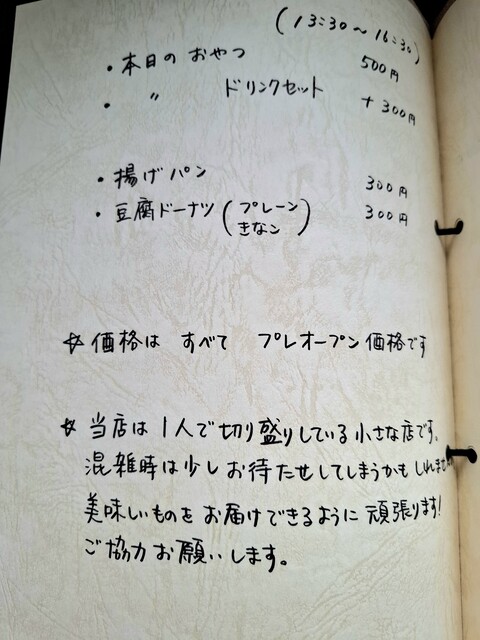 (13:30～16:30)
・本日のおやつ 500円
・ 〃 ドリンクセット +300円
・揚げパン 300円
・豆腐ドーナツ(プレーン 300円
きなこ)
☆価格は すべて プレオープン価格です
☆当店は1人で切り盛りしている小さな店です。
混雑時は少しお待たせしてしまうかもしれませ
美味しいものをお届けできるように頑張ります!
ご協力お願いします。